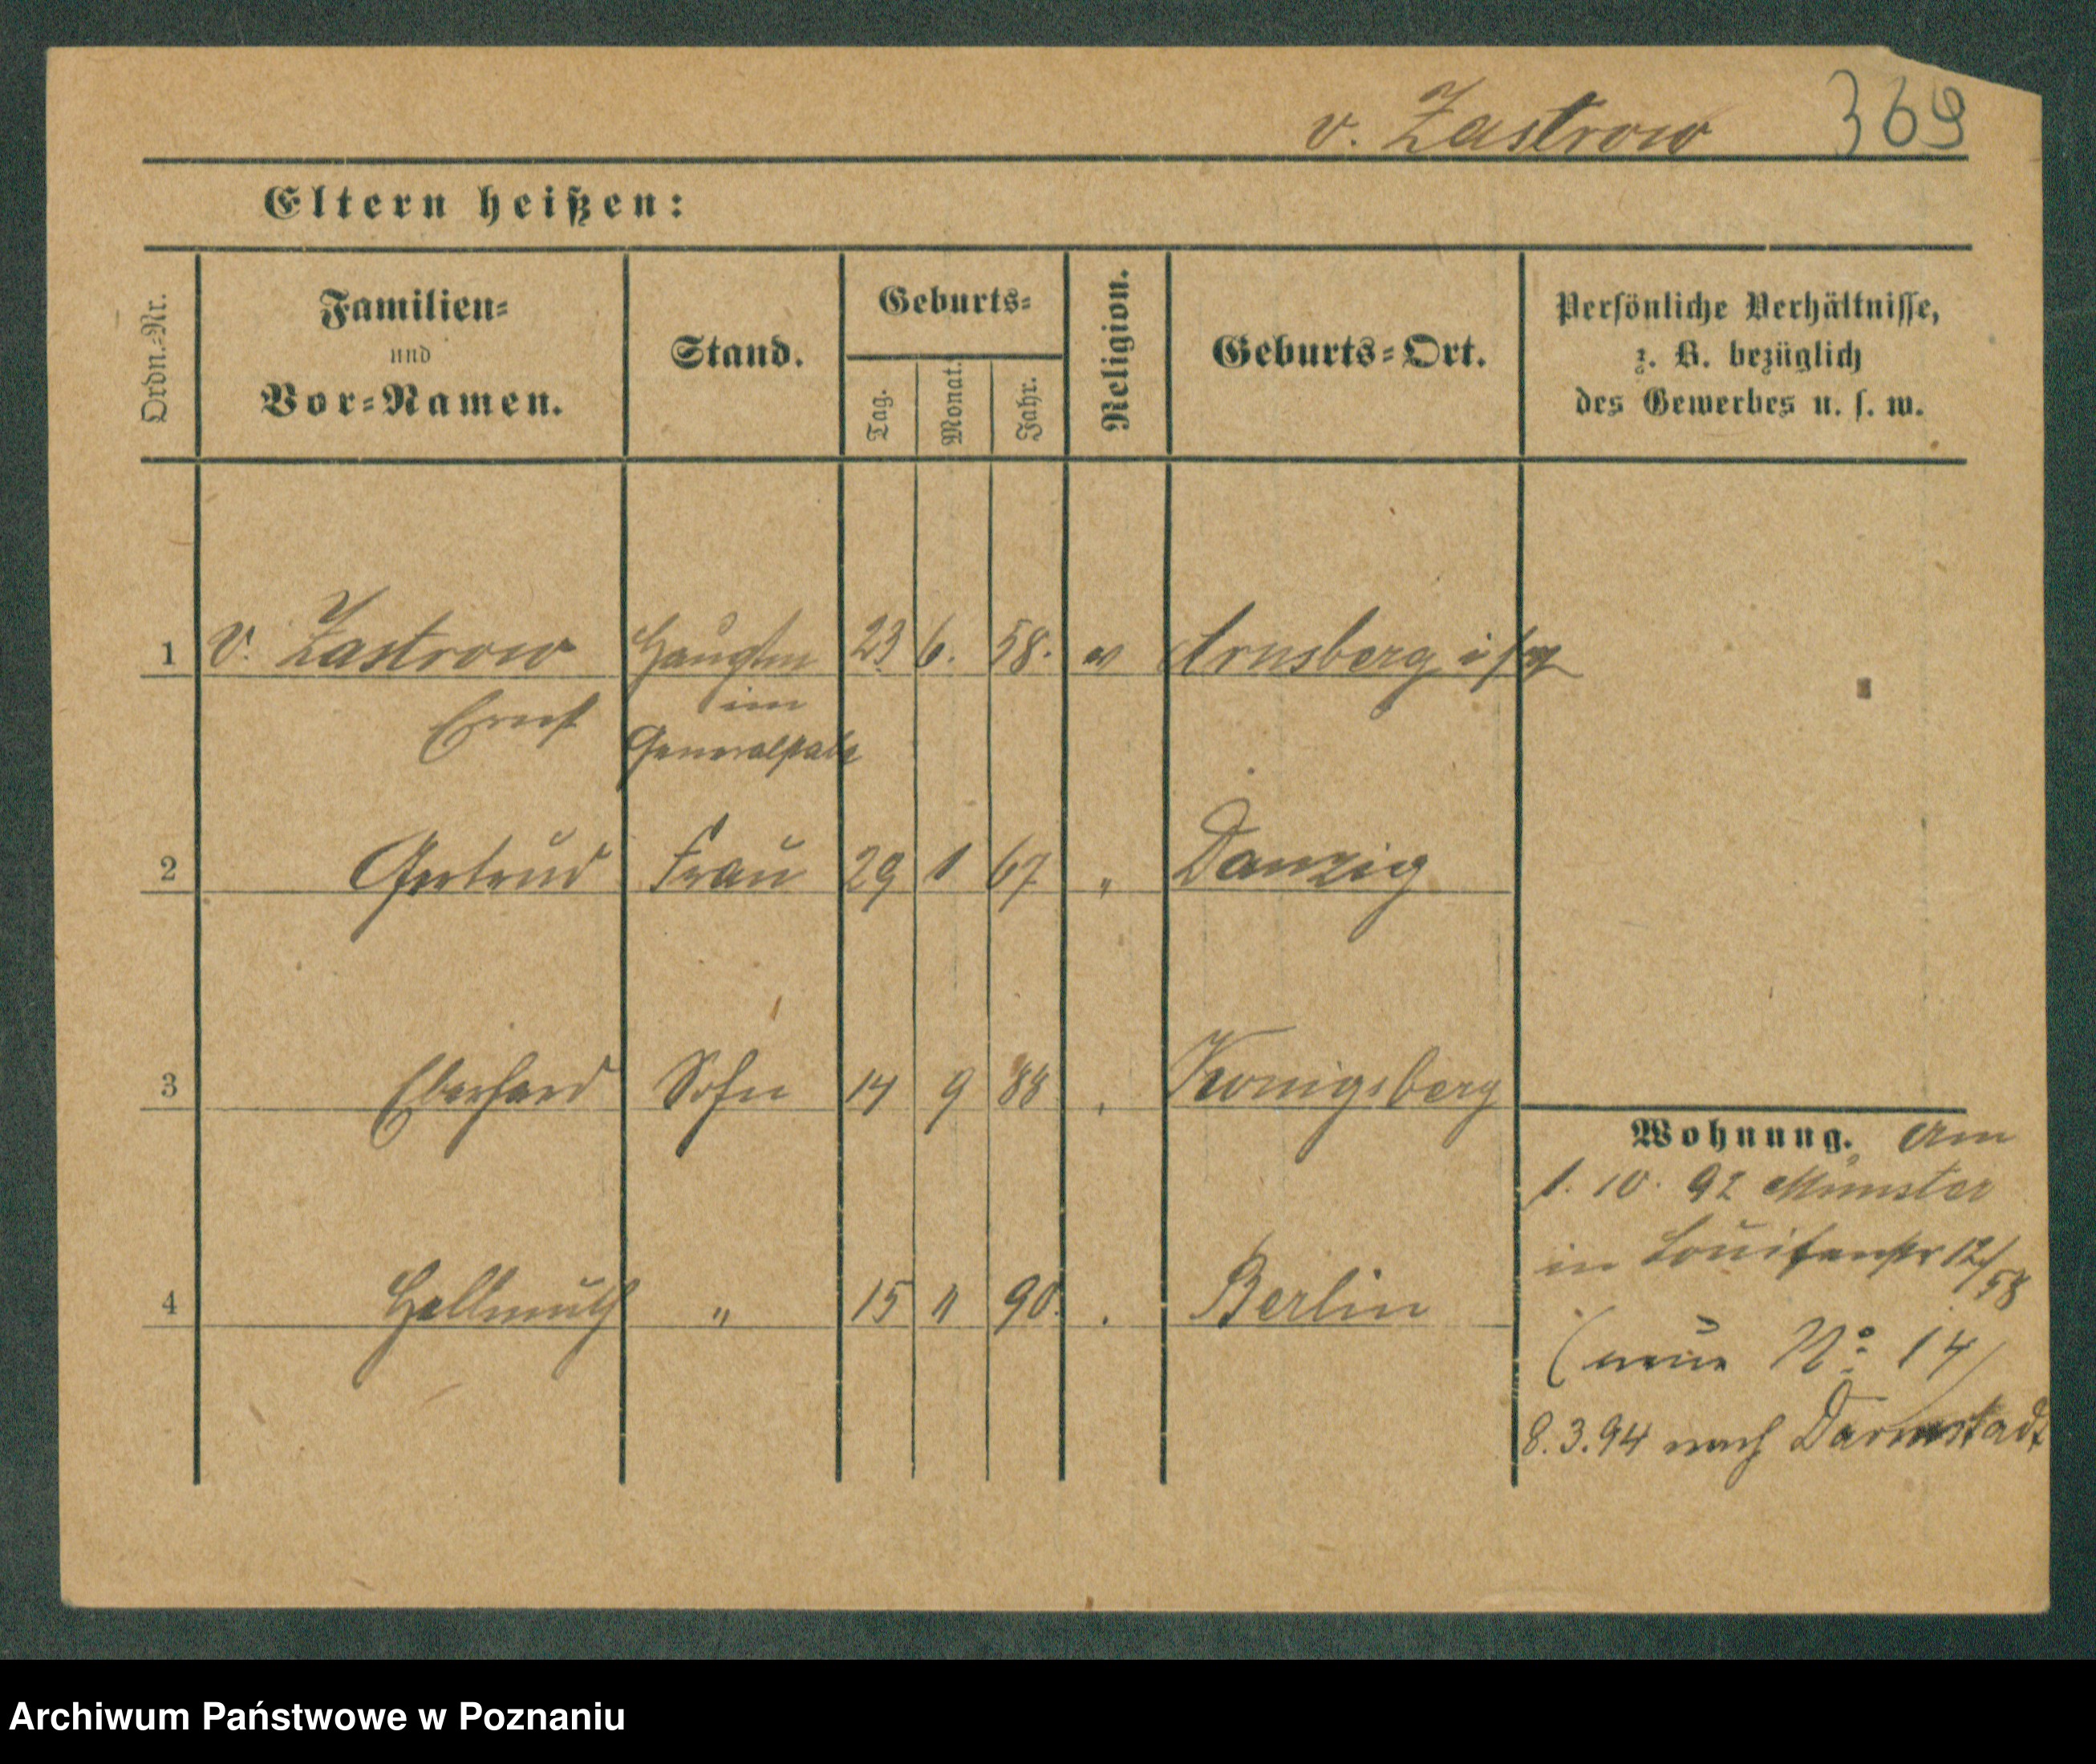 v. Zastrow 369
Eltern heißen:
Ordn.-Nr.
Familien-
und
Vor-Namen.
Stand.
Geburts-
Tag.
Monat.
Jahr.
Religion.
Geburts-Ort.
Persönliche Verhältnisse,
z. B. bezüglich
des Gewerbes u. s. w.
1 v. Zastrow Hauptm 23 6. 58. ev Arnsberg
Ernst im
Generalstabe
2 Gertrud Frau 29 1 67 " Danzig
3 Eberhard Sohn 14 9 88 Königsberg
4 Hellmuth " 15 11 90. Berlin
Wohnung. Am
1. 10. 92 Münster
in Louisenstr 12/
58
(neue No 14)
8.3.94 nach Darmstadt
Archiwum Państwowe w Poznaniu